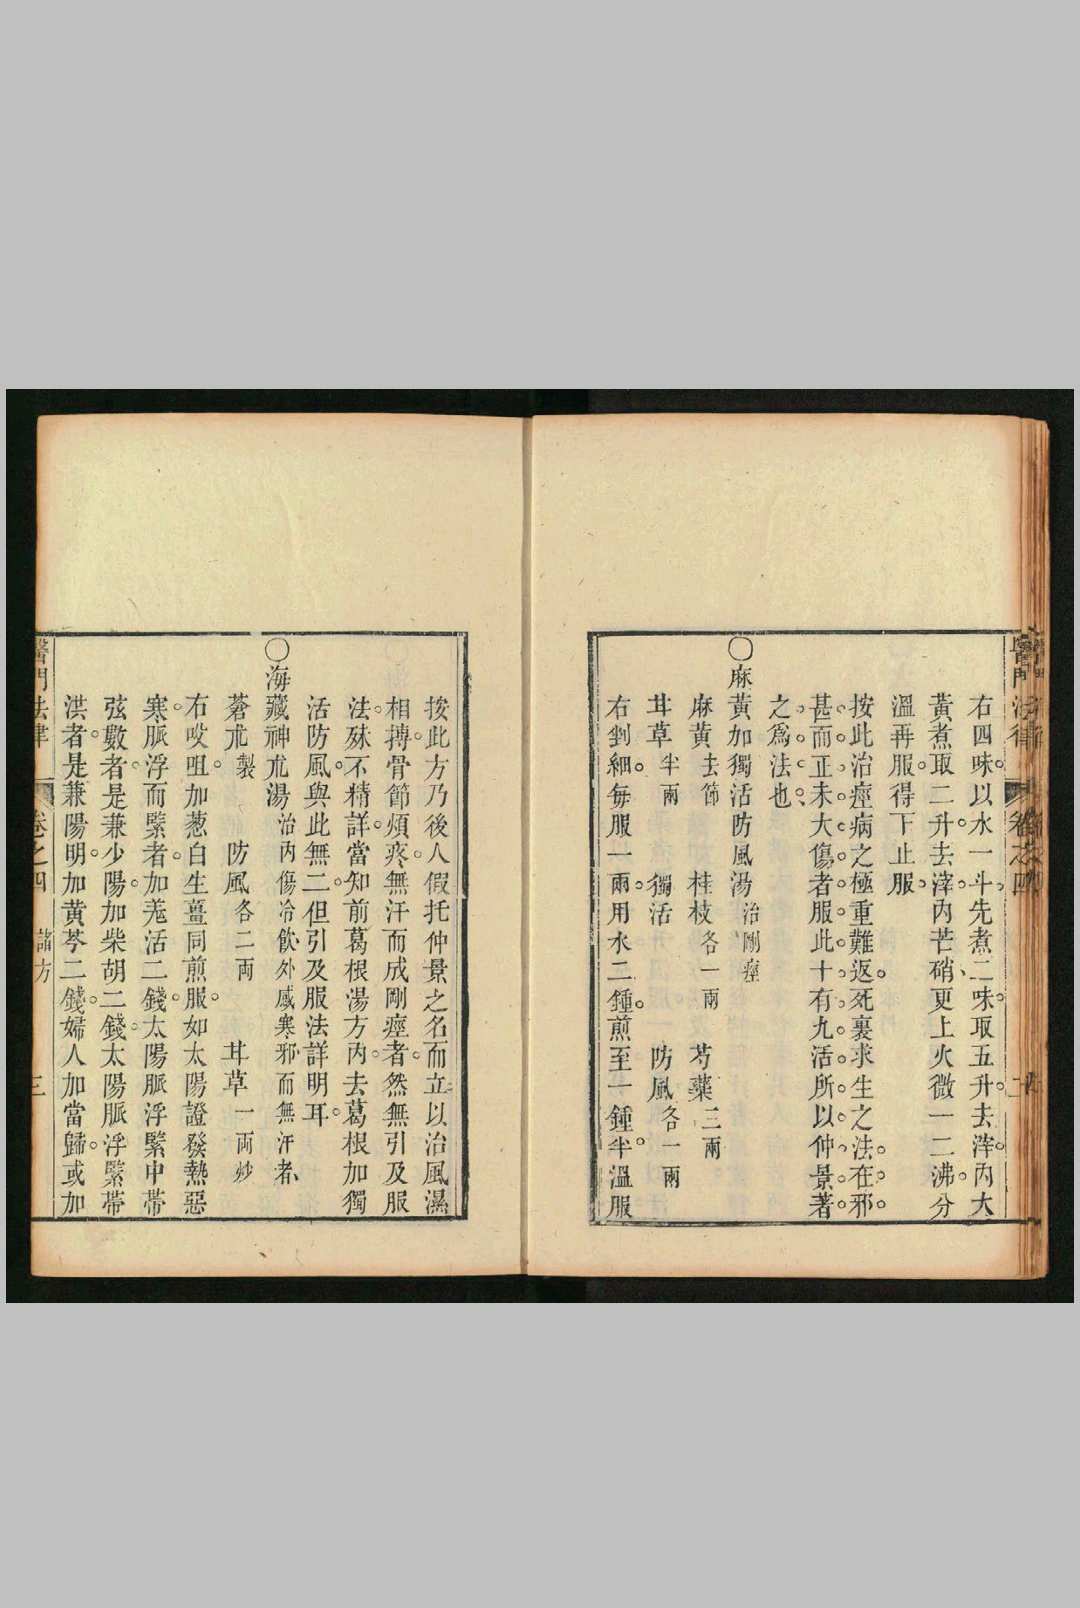 右四味以水一斗先煮二味取五升去滓內大
黃煮取二升去滓內芒硝更上火微一二沸分
溫再服得下止服
按此治痙病之極重難返死裏求生之法在邪
甚而正未大傷者服此十有九活所以仲景著
之爲法也
〇麻黃加獨活防風湯治剛痙
麻黃去節 桂枝各一兩 芍藥三兩
甘草半兩 獨活 防風各一兩
右剉細每服一兩用水二鍾煎至一鍾半溫服
按此方乃後人假托仲景之名而立以治風濕
相搏骨節煩疼無汗而成剛痙者然無引及服
法殊不精詳當知前葛根湯方內去葛根加獨
活防風與此無二但引及服法詳明耳
〇海藏神朮湯治內傷冷飲外感寒邪而無汗者
蒼朮製 防風各二兩 甘草一兩炒
右㕮咀加葱白生薑同煎服如太陽證發熱惡
寒脈浮而緊者加羗活二錢太陽脈浮緊中帶
弦數者是兼少陽加柴胡二錢太陽脈浮緊帶
洪者是兼陽明加黃芩二錢婦人加當歸或加
醫門法律 卷之四 諸方 三